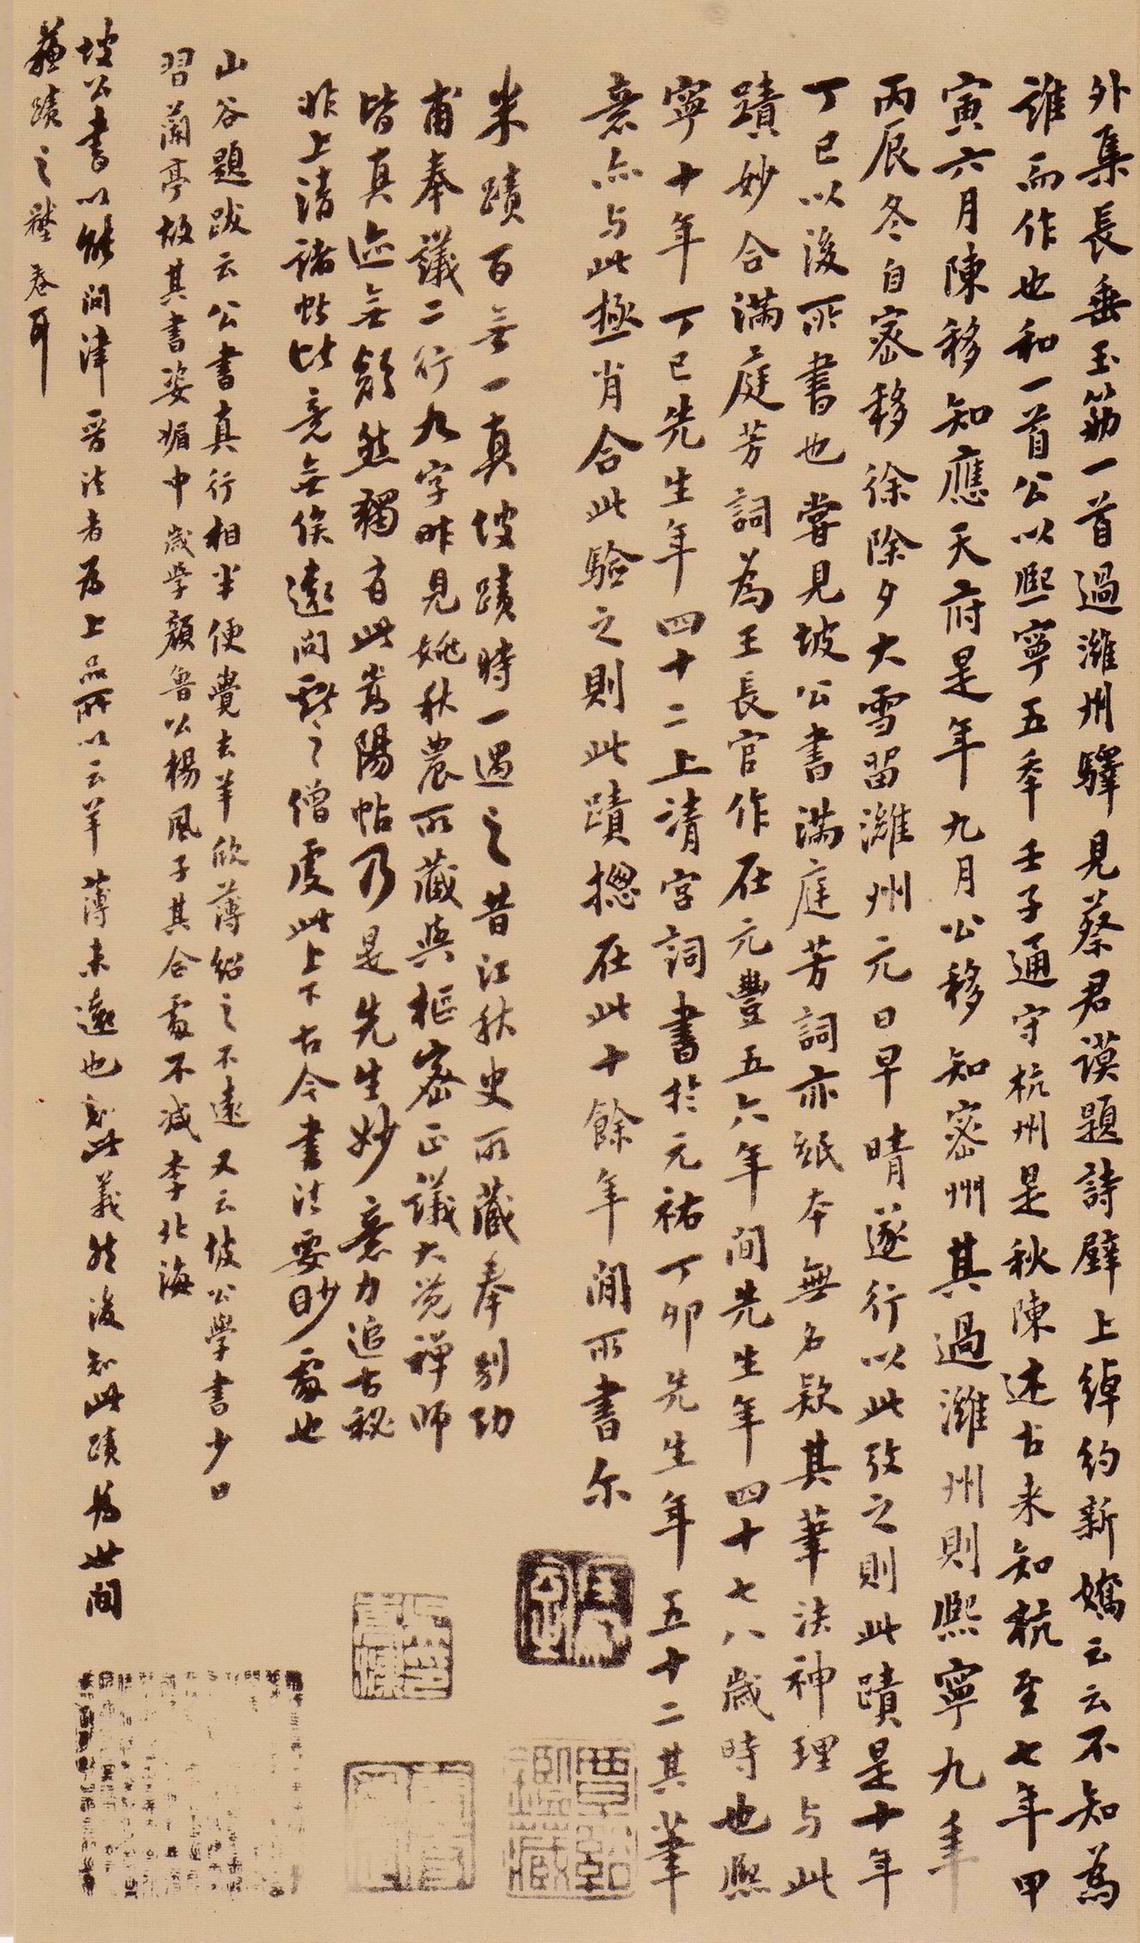 外集長垂玉筯一首過濰州驛見蔡君謨題詩壁上綽約新嬌云云不知為
誰而作也和一首公以熙寧五年壬子通守杭州是秋陳述古來知杭至七年甲
寅六月陳移知應天府是年九月公移知密州其過濰州則熙寧九年
丙辰冬自密移徐除夕大雪留濰州元日早晴遂行以此攷之則此蹟是十年
丁巳以後所書也嘗見坡公書滿庭芳詞亦紙本無名款其筆法神理与此
蹟妙合滿庭芳詞為王長官作在元豐五六年間先生年四十七八歲時也熙
寧十年丁巳先生年四十二上清宮詞書於元祐丁卯先生年五十二其筆
意亦与此極肖合此驗之則此蹟摠在此十餘年間所書尔
米蹟百無一真坡蹟時一遇之昔江秋史所藏奉別功
甫奉議二行九字昨見姚秋農所藏與樞密正議大覺禅師
皆真迹無疑然獨有此嵩陽帖乃是先生妙意力追古秘
非上清諸帖比竟無俟遠問歐之僧虔此上下古今書法要眇處也
山谷題跋云公書真行相半便覺去羊欣薄紹之不遠又云坡公學書少日
習蘭亭故其書姿媚中歲學顏魯公楊風子其合處不減李北海
坡公書以能問津晉法者為上品所以云羊薄未遠也知此義然後知此蹟為世間
蘇蹟之 卷耳